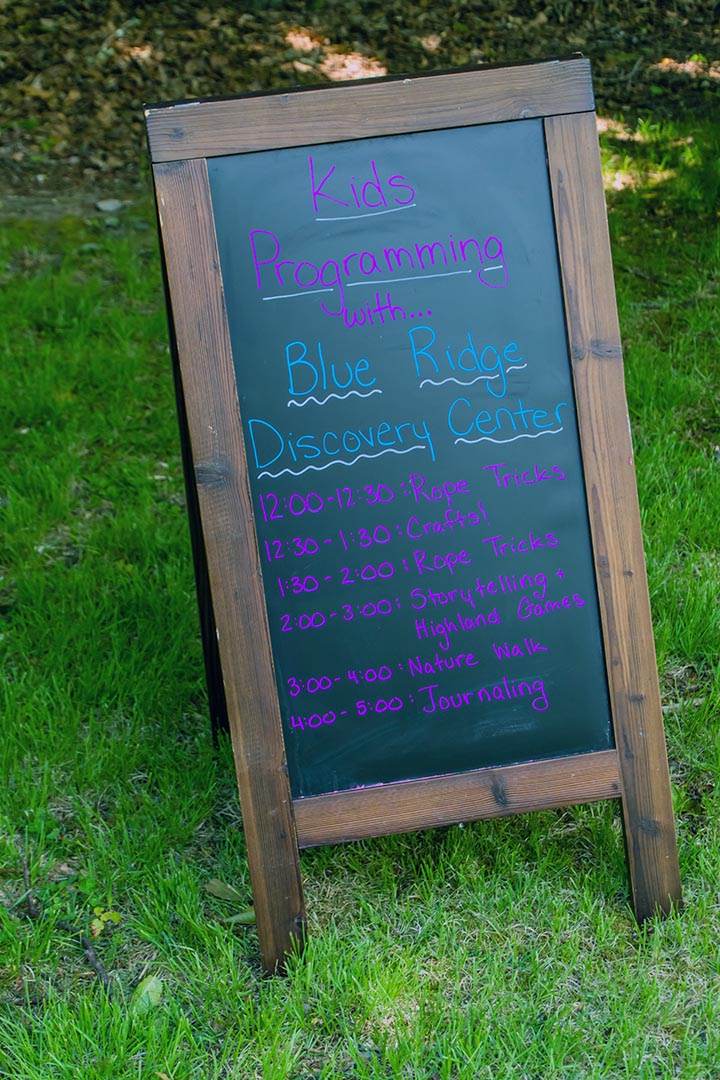 Kids
Programming
with...
Blue Ridge
Discovery Center
12:00-12:30: Rope Tricks
12:30-1:30: Crafts!
1:30-2:00: Rope Tricks
2:00-3:00: Storytelling +
Highland Games
3:00-4:00: Nature Walk
4:00-5:00: Journaling